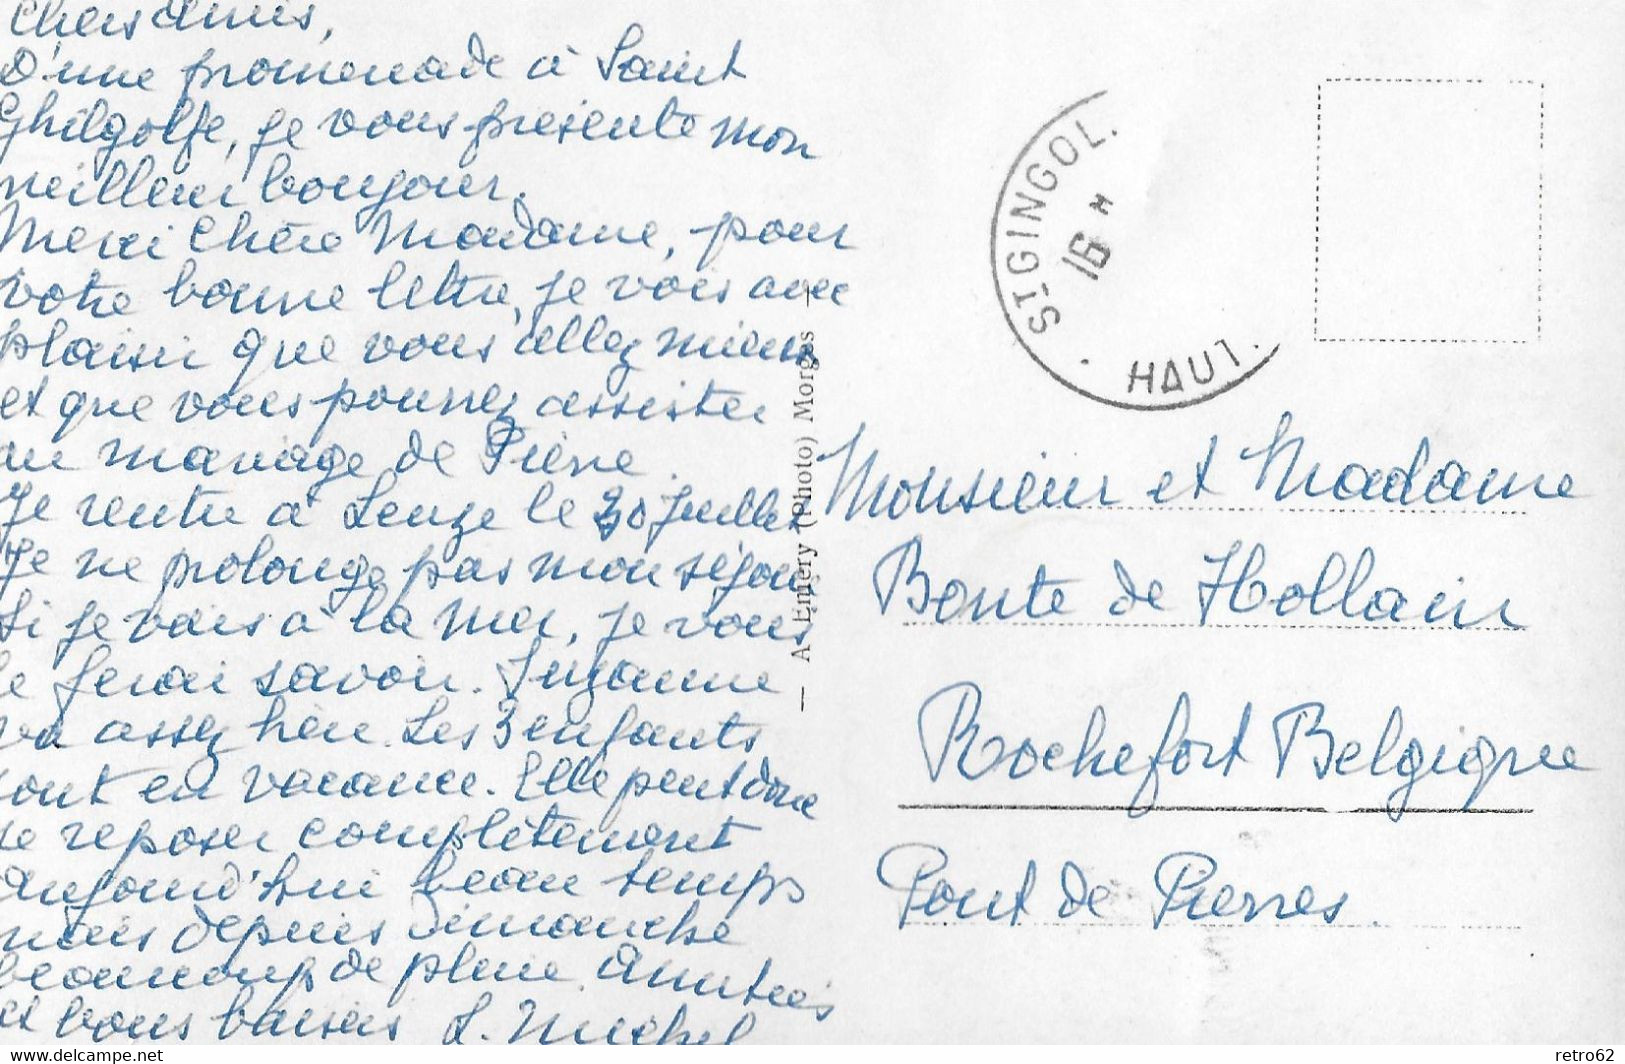 Chers amis,
D'une promenade à Saint
Ghilgolfe, je vous présente mon
meilleur bonjour.
Merci Chère Madame, pour
votre bonne lettre, je vois avec
plaisir que vous allez mieux
et que vous pourrez assister
au mariage de Pierre.
Je rentre à Leuze le 30 juillet
Je ne prolonge pas mon séjour
Si je vais à la mer, je vous
le ferai savoir. Suzanne
va assez bien. Les 3 enfants
sont en vacance. Elle peut donc
se reposer complètement
aujourd'hui beau temps
mais depuis dimanche
beaucoup de pluie. Amitiés
et bons baisers L. Michel
— A. Emery (Photo) Morges —
ST-GINGOL.
16
HAUT.
Monsieur et Madame
Bonte de Hollain
Rochefort Belgique
Pont de Pierres.
www.delcampe.net
retro62